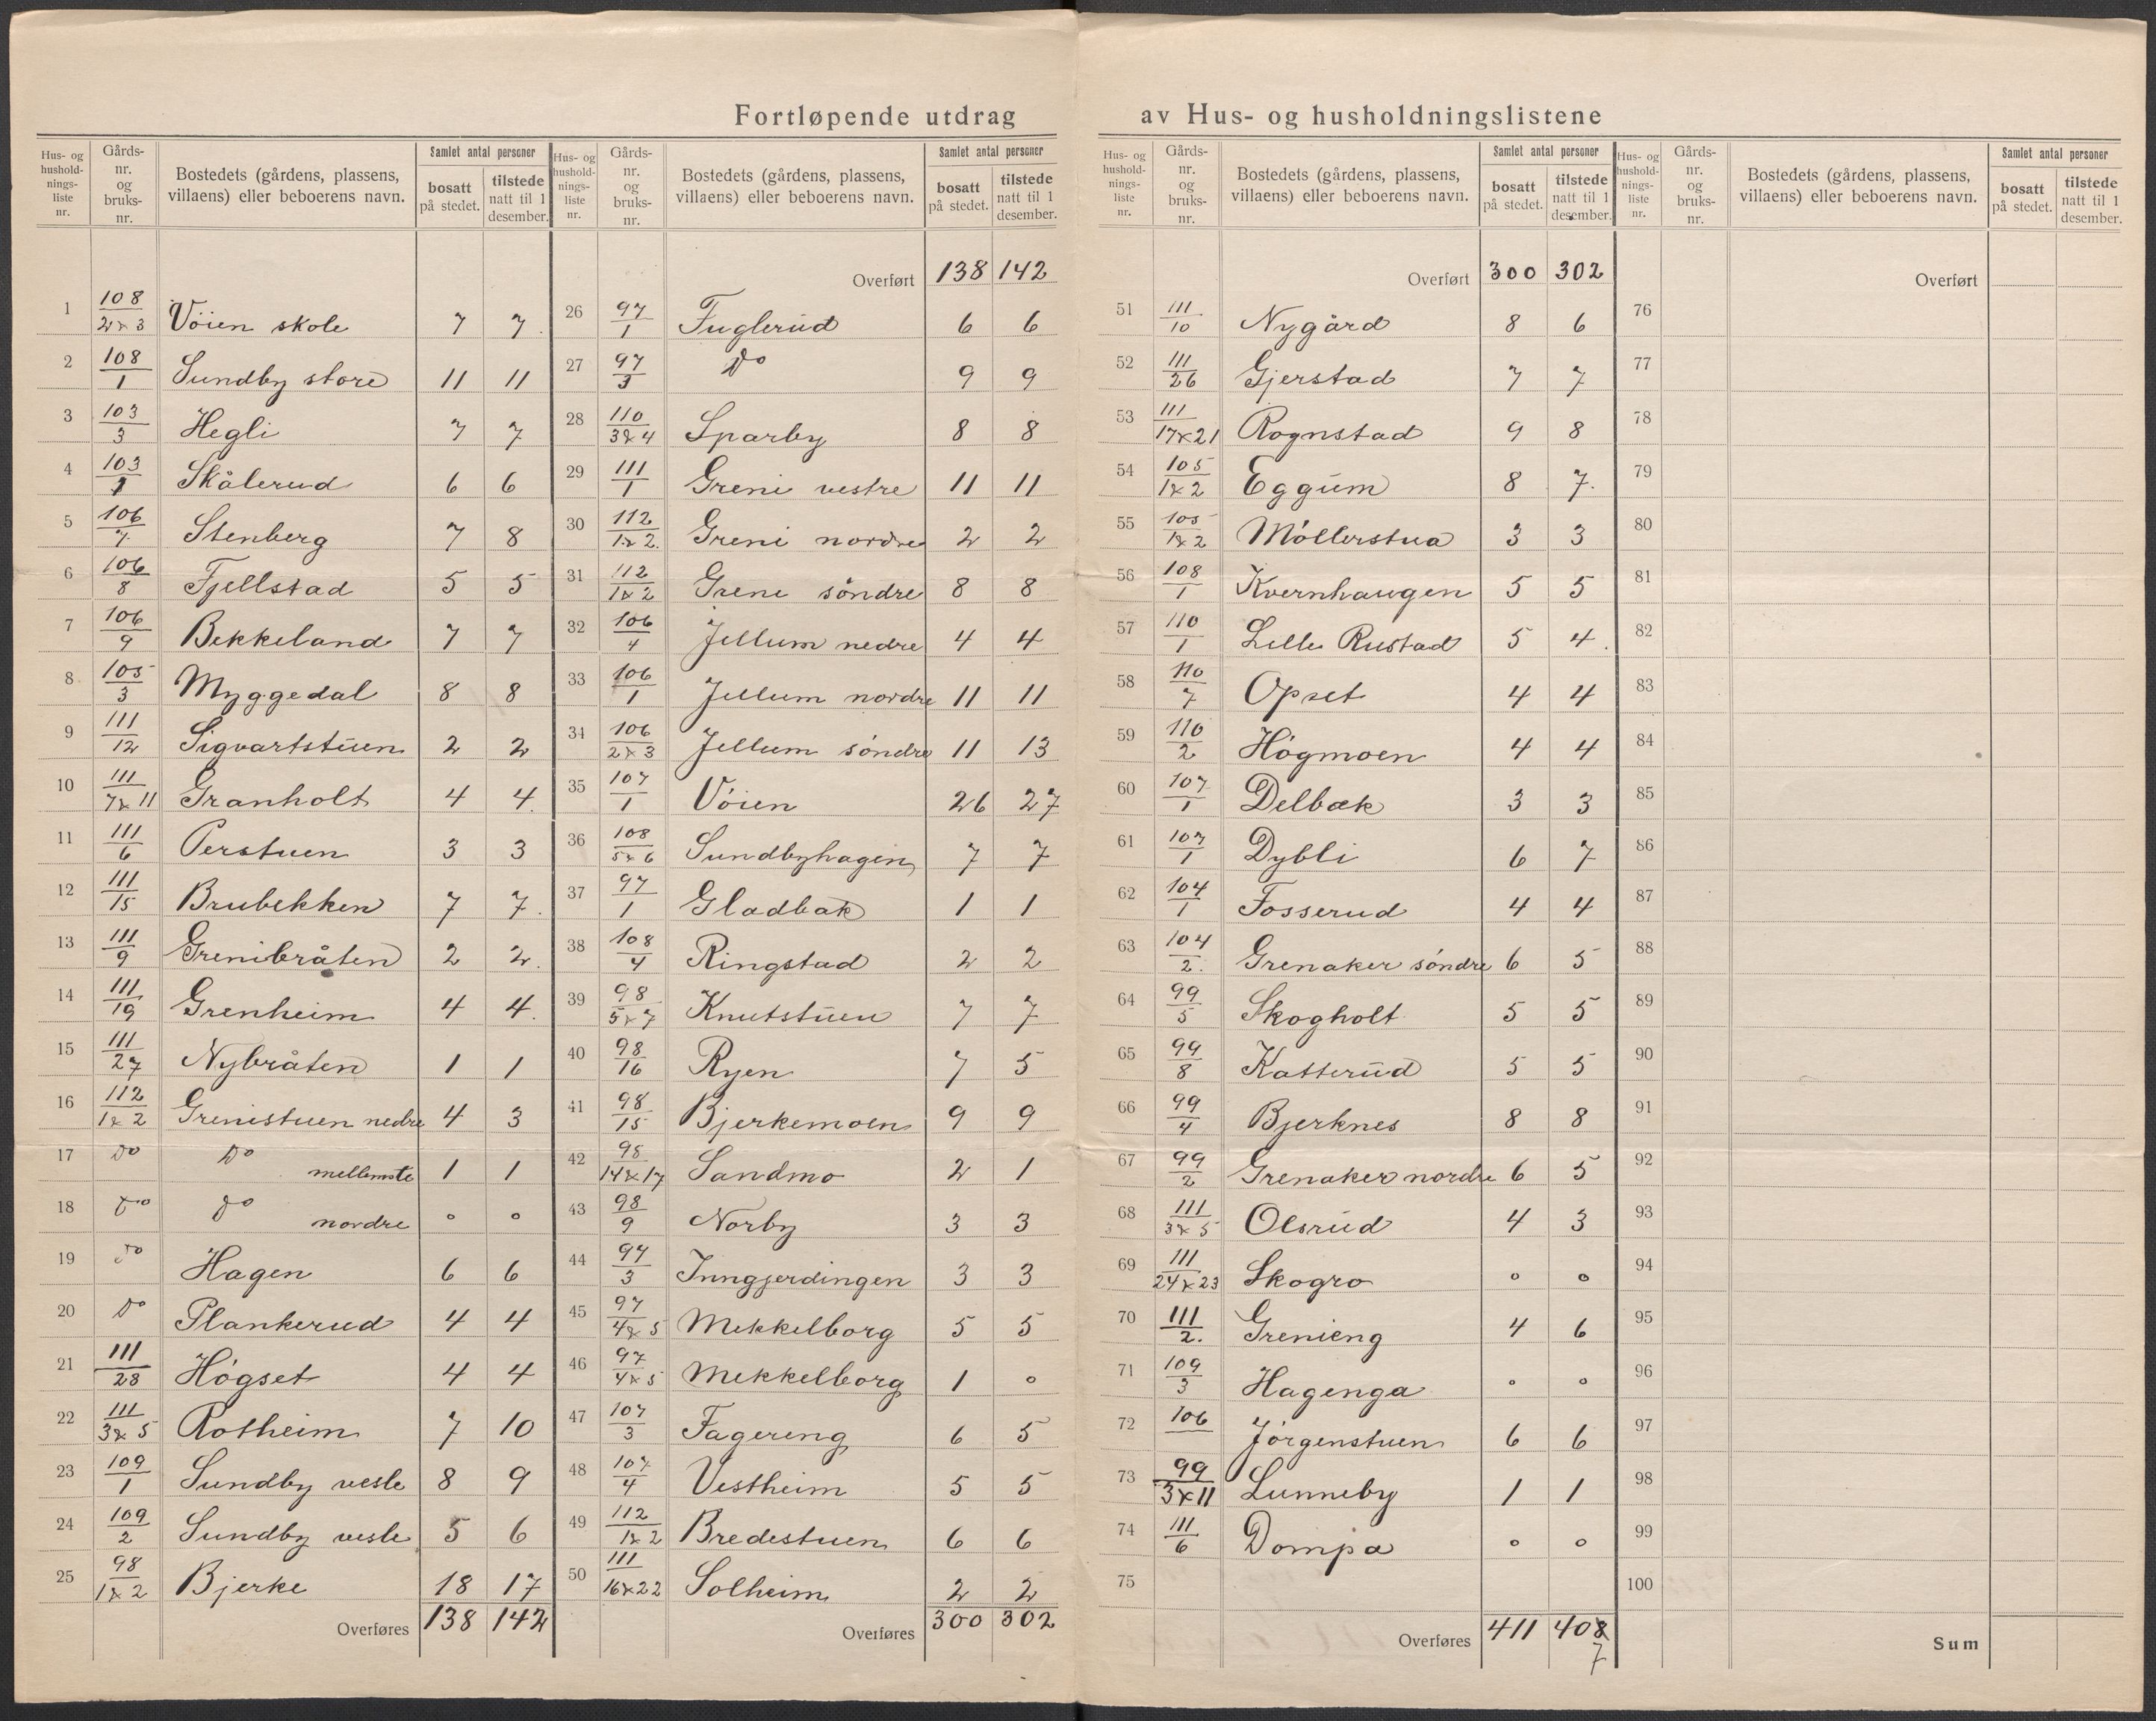 Fortløpende utdrag av Hus- og husholdningslistene
Hus- og husholdningsliste nr. | Gårds-nr. og bruks-nr. | Bostedets (gårdens, plassens, villaens) eller beboerens navn. | Samlet antal personer: bosatt på stedet. | tilstede natt til 1 desember.
1 108/2&3 Vöien skole 7 7
2 108/1 Sundby store 11 11
3 103/3 Hegli 7 7
4 103/1 Skålerud 6 6
5 106/7 Stenberg 7 8
6 106/8 Fjellstad 5 5
7 106/9 Bekkeland 7 7
8 105/3 Myggedal 8 8
9 111/12 Sigvartstuen 2 2
10 111/7&11 Granholt 4 4
11 111/6 Perstuen 3 3
12 111/15 Brubekken 7 7
13 111/9 Grenibråten 2 2
14 111/19 Grenheim 4 4
15 111/27 Nybråten 1 1
16 112/1&2 Grenistuen nedre 4 3
17 Do Do mellemste 1 1
18 Do Do nordre 0 0
19 Do Hagen 6 6
20 Do Plankerud 4 4
21 111/28 Högset 4 4
22 111/3&5 Rotheim 7 10
23 109/1 Sundby vesle 8 9
24 109/2 Sundby vesle 5 6
25 98/1&2 Bjerke 18 17
Overføres 138 142
Hus- og husholdningsliste nr. | Gårds-nr. og bruks-nr. | Bostedets (gårdens, plassens, villaens) eller beboerens navn. | Samlet antal personer: bosatt på stedet. | tilstede natt til 1 desember.
Overført 138 142
26 97/1 Fuglerud 6 6
27 97/3 Do 9 9
28 110/3&4 Sparby 8 8
29 111/1 Greni vestre 11 11
30 112/1&2 Greni nordre 2 2
31 112/1&2 Greni söndre 8 8
32 106/4 Jellum nedre 4 4
33 106/1 Jellum nordre 11 11
34 106/2&3 Jellum söndre 11 13
35 107/1 Vöien 26 27
36 108/5&6 Sundbyhagen 7 7
37 97/1 Gladbak 1 1
38 108/4 Ringstad 2 2
39 98/5&7 Knutstuen 7 7
40 98/16 Ryen 7 5
41 98/15 Bjerkemoen 9 9
42 98/14&17 Sandmo 2 1
43 98/9 Norby 3 3
44 97/3 Inngjerdingen 3 3
45 97/4&5 Mekkelborg 5 5
46 97/4&5 Mekkelborg 1 0
47 107/3 Fagereng 6 5
48 107/4 Vestheim 5 5
49 112/1&2 Bredestuen 6 6
50 111/16&22 Solheim 2 2
Overføres 300 302
Hus- og husholdningsliste nr. | Gårds-nr. og bruks-nr. | Bostedets (gårdens, plassens, villaens) eller beboerens navn. | Samlet antal personer: bosatt på stedet. | tilstede natt til 1 desember.
Overført 300 302
51 111/10 Nygård 8 6
52 111/26 Gjerstad 7 7
53 111/17&21 Rognstad 9 8
54 105/1&2 Eggum 8 7
55 105/1&2 Möllerstua 3 3
56 108/1 Kvernhaugen 5 5
57 110/1 Lille Rustad 5 4
58 110/7 Opset 4 4
59 110/2 Högmoen 4 4
60 107/1 Delbæk 3 3
61 107/1 Dybli 6 7
62 104/1 Fosserud 4 4
63 104/2 Grenaker söndre 6 5
64 99/5 Skogholt 5 5
65 99/8 Katterud 5 5
66 99/4 Bjerknes 8 8
67 99/2 Grenaker nordre 6 5
68 111/3&5 Olsrud 4 3
69 111/24&23 Skogro 0 0
70 111/2 Grenieng 4 6
71 109/3 Hagenga 0 0
72 106 Jörgenstuen 6 6
73 99/3&11 Lunneby 1 1
74 111/6 Dompa 0 0
75
Overføres 411 408
7
Hus- og husholdningsliste nr. | Gårds-nr. og bruks-nr. | Bostedets (gårdens, plassens, villaens) eller beboerens navn. | Samlet antal personer: bosatt på stedet. | tilstede natt til 1 desember.
Overført
76
77
78
79
80
81
82
83
84
85
86
87
88
89
90
91
92
93
94
95
96
97
98
99
100
Sum